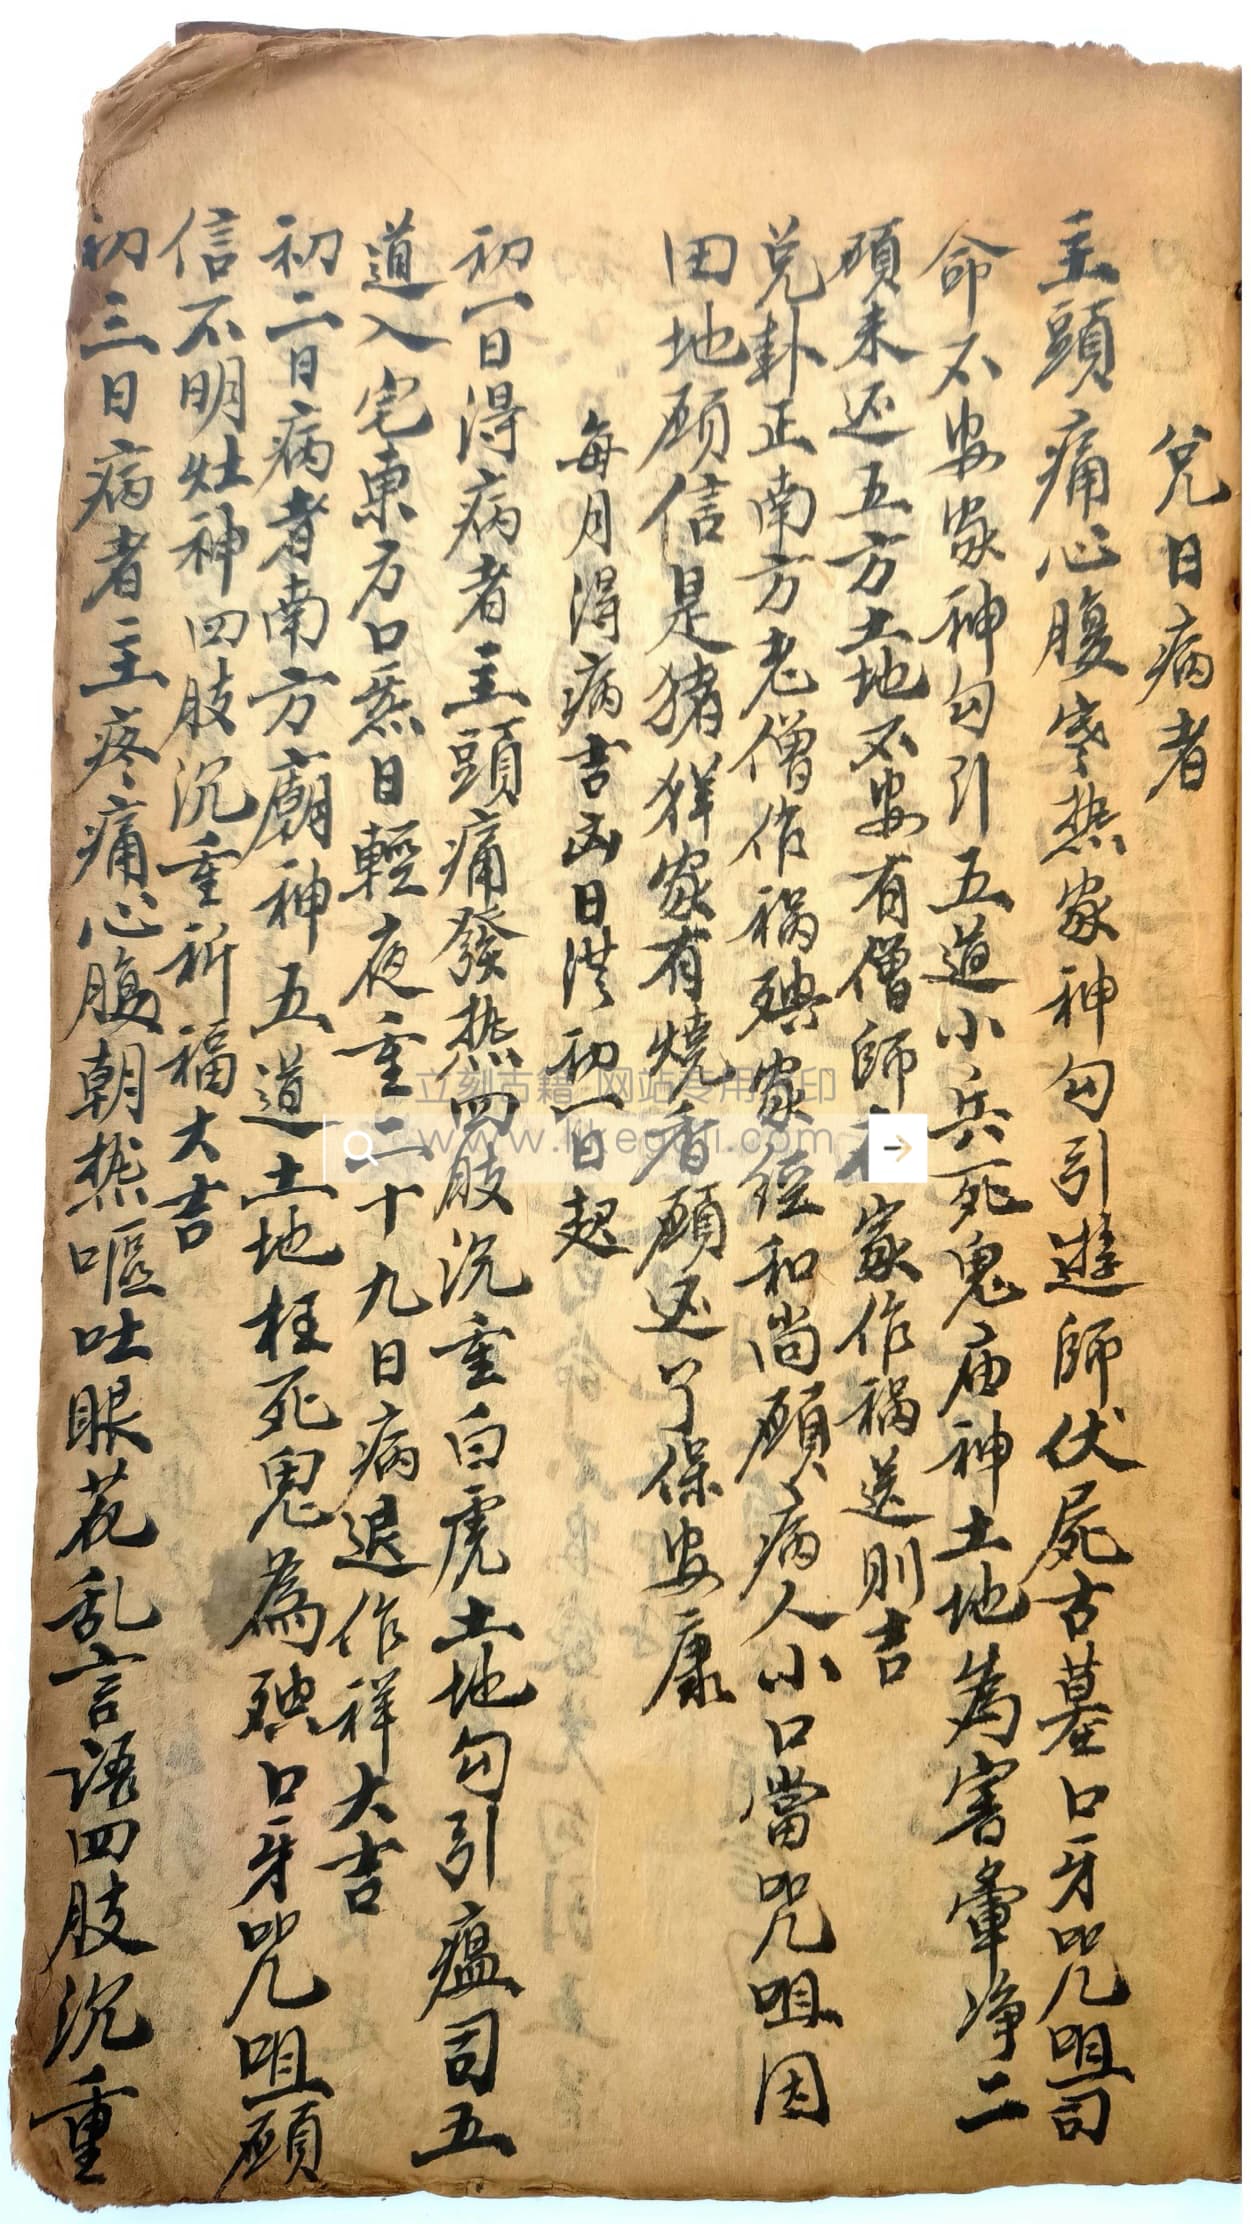 兌日病者
主頭痛心腹寒热家神勾引遊師伏屍古墓口牙咒咀司
命不安家神勾引五道小兵死鬼庙神土地為害軍净二
願未还五方土地不安有僧師家作禍送則吉
兑卦正南方老僧作祸家和尚願病人小口當咒咀因
田地願信是猪猔家有燒香願还了保安康
每月得病吉凶日洪初一日起
初一日得病者主頭痛發热四肢沉重白虎土地勾引瘟司五
道入宅東方口煞日輕夜重二十九日病退作祥大吉
初二日病者南方廟神五道土地枉死鬼為口牙咒咀願
信不明灶神四肢沉重祈福大吉
初三日病者主疼痛心腹朝热嘔吐眼花乱言語四肢沉重
立刻古籍 网站专用水印